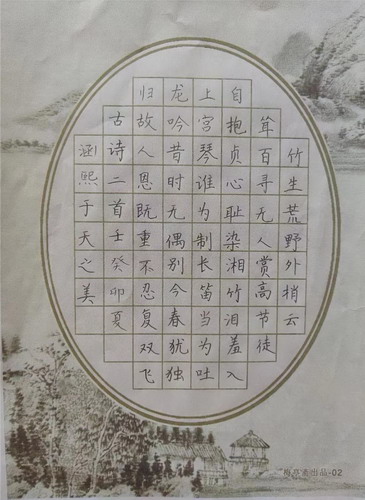 竹生荒野外梢云
耸百寻无人赏高节徒
自抱贞心耻染湘竹泪羞入
上宫琴谁为制长笛当为吐
龙吟昔时无偶别今春犹独
归故人恩既重不忍复双飞
古诗二首壬癸卯夏
涵熙于天之美
出品-02